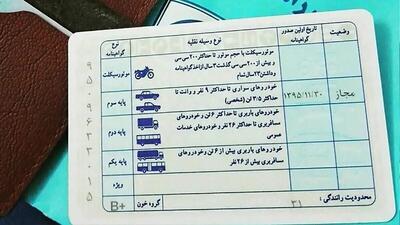 وضعیت
تاریخ اولین صدور گواهینامه
نوع وسیله نقلیه
نوع گواهینامه
موتورسیکلت با حجم موتور تا حداکثر ۲۰۰ سی سی
و بیش از ۲۰۰ سی سی گذشت ۳ سال از اخذ گواهینامه
وداشتن ۲۳ سال تمام
موتورسیکلت
خودروهای سواری تا حداکثر ۹ نفر و وانت تا
حداکثر ۳/۵ تن (شخصی)
پایه سوم
۱۳۹۵/۱۱/۳۰
مجاز
خودروهای باربری تا حداکثر ۶ تن و خودروهای
مسافربری تا حداکثر ۲۶ نفر و خودروهای خدمات
عمومی
پایه دوم
خودروهای باربری بیش از ۶ تن و خودروهای
مسافربری بیش از ۲۶ نفر
پایه یکم
ویژه
محدودیت رانندگی : ۳۱
گروه خون
B+
۹
۵
۰
۹
۶
۳
۳